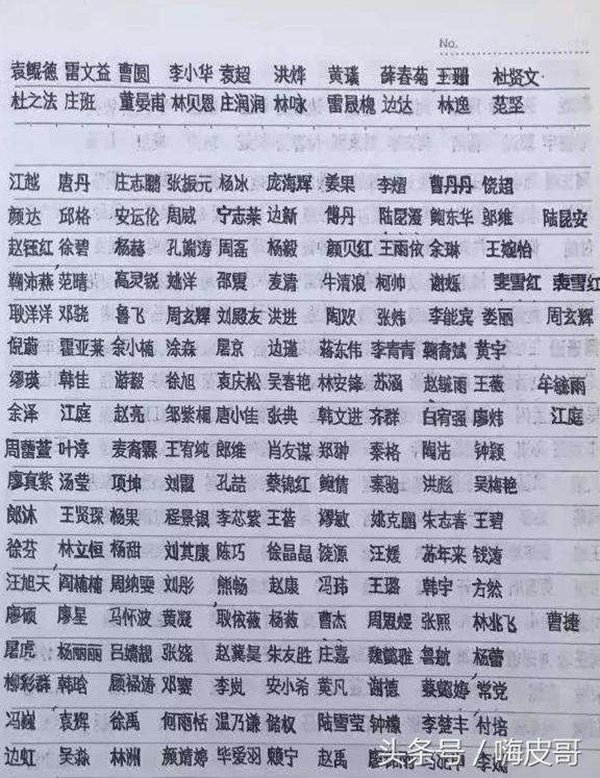 No.
袁鲲德 雷文益 曹圆 李小华 袁超 洪烨 黄瑱 薛春菊 王珊 杜贤文
杜之法 庄班 董晏甫 林贝恩 庄润润 林咏 雷晟槐 边达 林逸 范坚
江越 唐丹 庄志鹏 张振元 杨冰 庞海辉 姜果 李熠 曹丹丹 饶超
颜达 邱格 安运伦 周威 宁志莱 边新 傅丹 陆昆滠 鲍东华 邬维 陆昆安
赵钰红 徐碧 杨赫 孔端涛 周磊 杨毅 颜贝红 王雨依 余琳 王婉怡
鞠沛燕 范晴 高灵锐 姚洋 邵震 麦清 牛清浪 柯帅 谢烁 娄雪红 裴雪红
耿洋洋 邓骁 鲁飞 周玄辉 刘殿友 洪进 陶双 张炜 李能宾 娄丽 周玄辉
倪蔚 霍亚莱 余小楠 涂森 屠京 边瑾 蒋东伟 李青青 鞠奇斌 黄宇
缪瑛 韩佳 游毅 徐旭 袁庆松 吴春艳 林安锋 苏涵 赵毓雨 王薇 牟毓雨
余泽 江庭 赵亮 邹紫楣 唐小佳 张典 韩文进 齐群 白宥强 廖炜 江庭
周蕾萱 叶淳 麦裔霖 王宥纯 郎维 肖友谋 郑翀 秦格 陶洁 钟颖
廖真紫 汤莹 项坤 刘霞 孔喆 蔡锦红 鲍倩 栗驰 洪彪 吴梅艳
郎沐 王贤琛 杨果 程景银 李芯紫 王蓉 缪敏 姚克鹏 朱志春 王碧
徐芬 林立恒 杨甜 刘其康 陈巧 徐晶晶 凌源 汪媛 苏年来 钱涛
汪旭天 阎楠楠 周纳雯 刘彤 熊畅 赵康 冯玮 王璐 韩宇 方然
廖硕 廖星 马怀波 黄凝 耿依薇 杨薇 曹杰 周思煜 张熙 林兆飞 曹捷
屠虎 杨丽丽 吕婧靓 张饶 赵冀昊 朱友胜 庄嘉 魏懿雅 鲁敏 杨蕾
柳彩群 韩晗 顾禄涛 邓赛 李岚 安小希 黄凡 谢德 蔡懿婷 常党
冯巍 袁辉 徐禹 何雨恬 温乃谦 储权 陆雪莹 钟樑 李楚丰 付培
边虹 吴淼 林洲 颜靖婷 毕爱羽 顾宁 赵禹
头条号 / 嗨皮哥